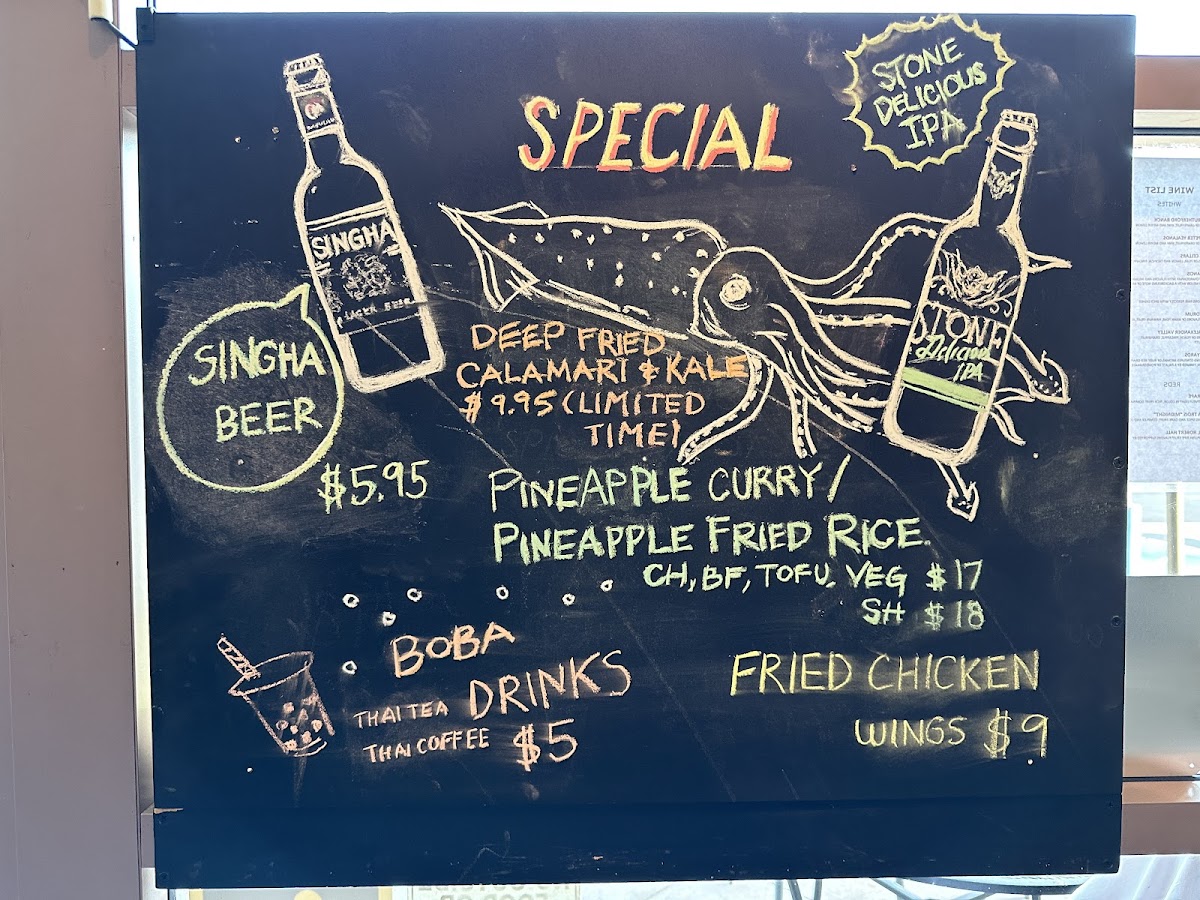 SPECIAL
STONE
DELICIOUS
IPA
SINGHA
LAGER BEER
STONE
Delicious
IPA
SINGHA
BEER
$5.95
DEEP FRIED
CALAMARI & KALE
$9.95 (LIMITED
TIME)
PINEAPPLE CURRY/
PINEAPPLE FRIED RICE.
CH, BF, TOFU, VEG $17
SH $18
BOBA
DRINKS
THAI TEA
THAI COFFEE $5
FRIED CHICKEN
WINGS $9
WINE LIST
WHITES
REDS